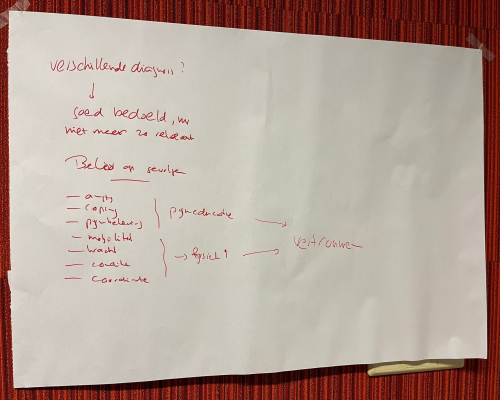 verschillende diagnosis?
↓
goed bedoeld, nu
niet meer zo relevant
Beleid op gevolgen
— angst
— coping
— pijnbeleving
— mobiliteit
— kracht
— conditie
— coordinatie
pijneducatie →
→ fysiek ↑ →
vertrouwen